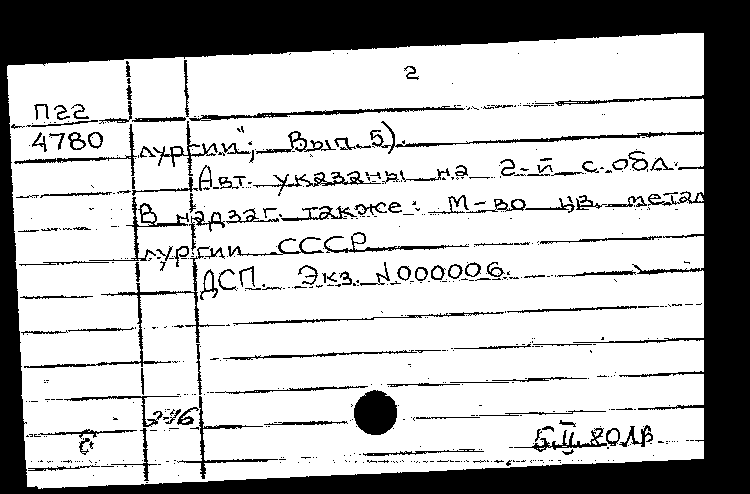 2
П22
4780
лургии"; Вып. 5).
Авт. указаны на 2-й с. обл.
В надзаг. также: М-во цв. метал
лургии СССР
ДСП. Экз. N000006.
б
5.II.80 ЛВ